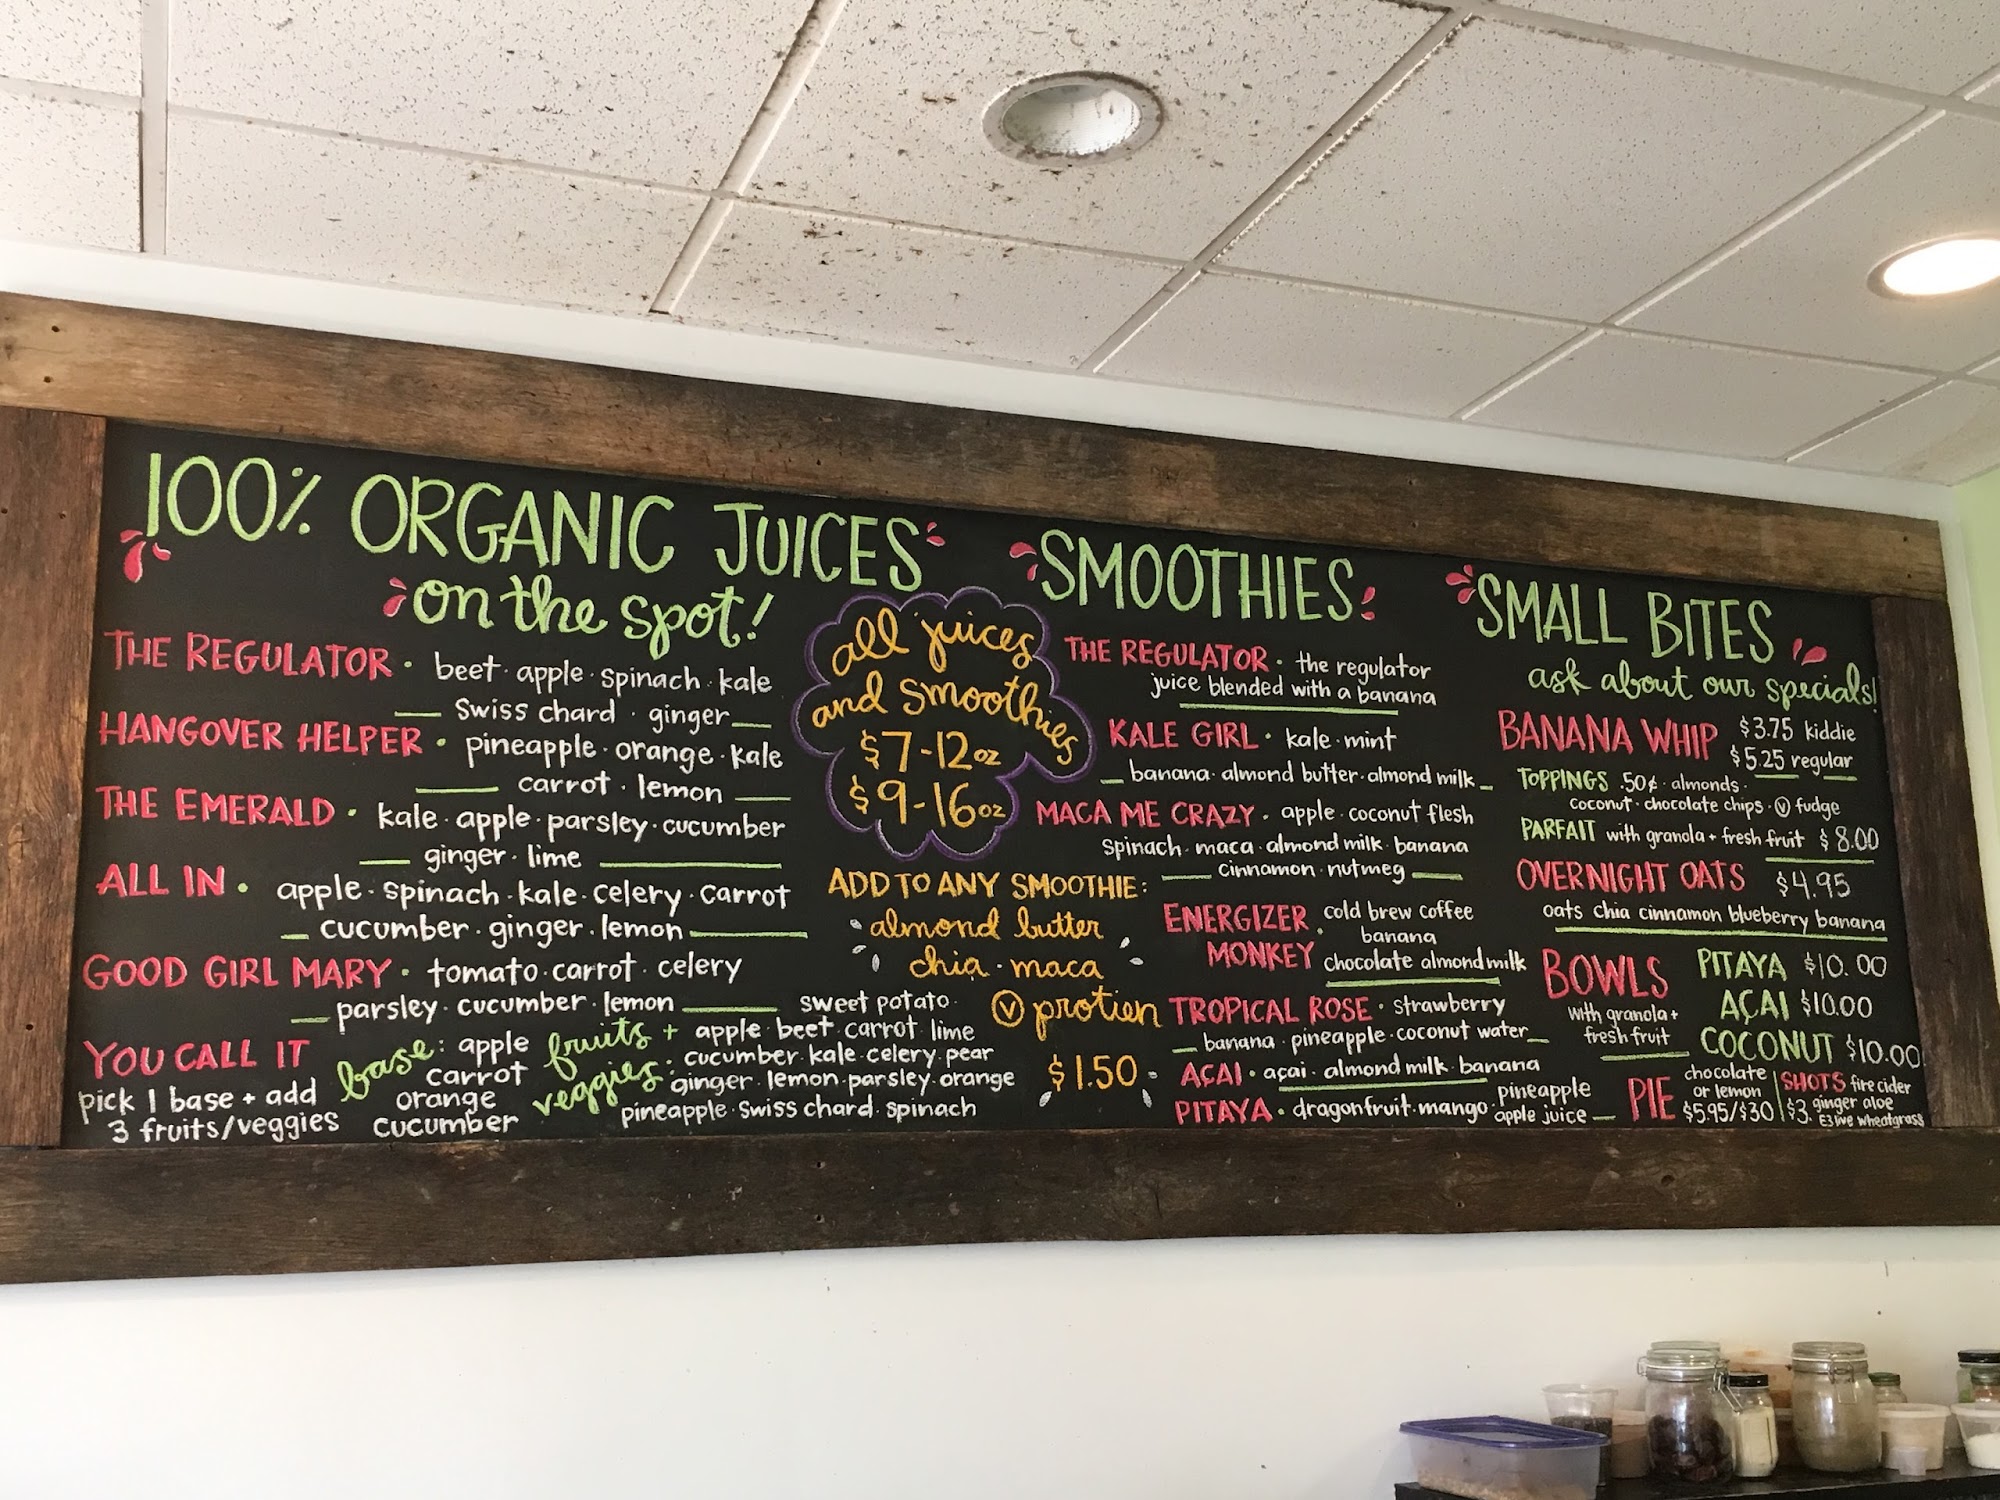 100% ORGANIC JUICES
on the spot!
THE REGULATOR · beet · apple · spinach · kale
swiss chard · ginger
HANGOVER HELPER · pineapple · orange · kale
carrot · lemon
THE EMERALD · kale · apple · parsley · cucumber
ginger · lime
ALL IN · apple · spinach · kale · celery · carrot
cucumber · ginger · lemon
GOOD GIRL MARY · tomato · carrot · celery
parsley · cucumber · lemon
YOU CALL IT
pick 1 base + add
3 fruits/veggies
base: apple
carrot
orange
cucumber
fruits +
veggies:
sweet potato ·
apple · beet · carrot · lime
cucumber · kale · celery · pear
ginger · lemon · parsley · orange
pineapple · swiss chard · spinach
all juices
and smoothies
$7-12oz
$9-16oz
ADD TO ANY SMOOTHIE:
almond butter
chia · maca
Ⓥ protien
$1.50
SMOOTHIES
THE REGULATOR · the regulator
juice blended with a banana
KALE GIRL · kale · mint
banana · almond butter · almond milk
MACA ME CRAZY · apple · coconut flesh
spinach · maca · almond milk · banana
cinnamon · nutmeg
ENERGIZER
MONKEY ·
cold brew coffee
banana
chocolate almond milk
TROPICAL ROSE · strawberry
banana · pineapple · coconut water
AÇAI · açai · almond milk · banana
PITAYA · dragonfruit · mango ·
pineapple
apple juice
SMALL BITES
ask about our specials!
BANANA WHIP
$3.75 kiddie
$5.25 regular
TOPPINGS .50¢ · almonds ·
coconut · chocolate chips · Ⓥ fudge
PARFAIT with granola + fresh fruit $8.00
OVERNIGHT OATS $4.95
oats chia cinnamon blueberry banana
BOWLS
with granola +
fresh fruit
PITAYA $10.00
AÇAI $10.00
COCONUT $10.00
PIE
chocolate
or lemon
$5.95/$30
SHOTS fire cider
$3. ginger aloe
E3live wheatgrass